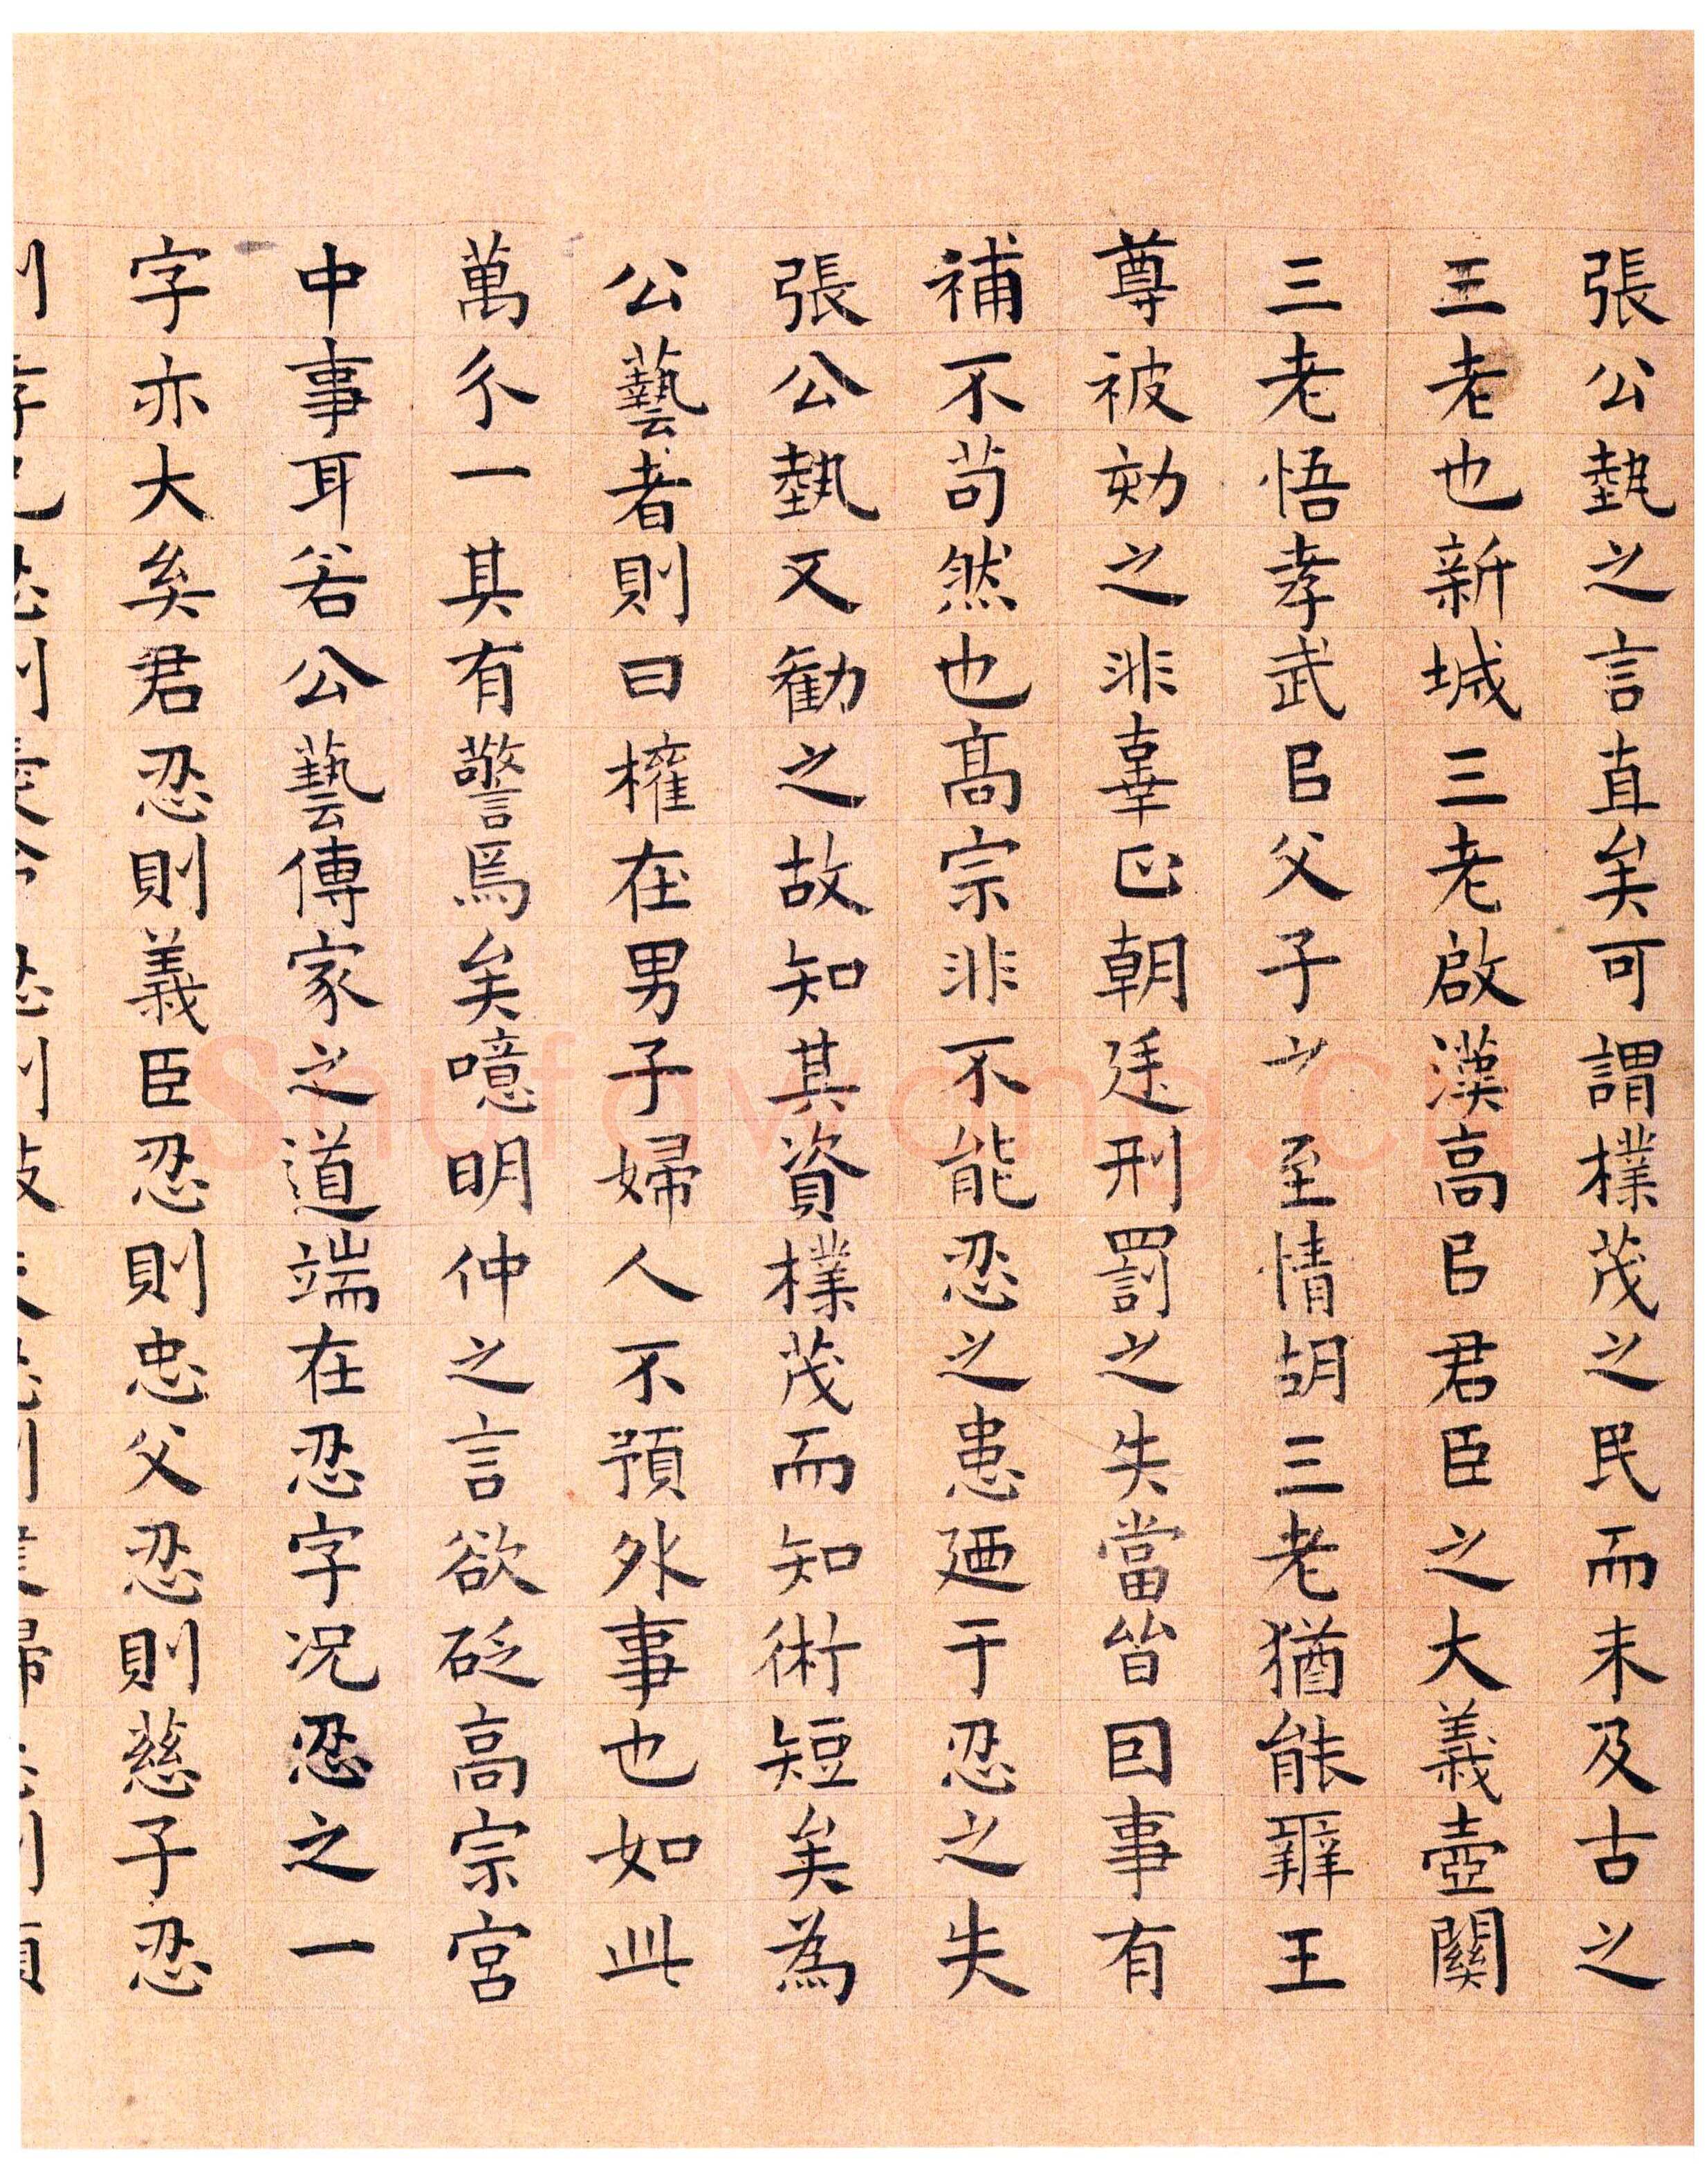 張公埶之言直矣可謂樸茂之民而未及古之
三老也新城三老啟漢高㠯君臣之大義壺關
三老悟孝武㠯父子之至情胡三老猶能辭王
尊被劾之非辜正朝廷刑罰之失當皆因事有
補不苟然也高宗非不能忍之患廼于忍之失
張公埶又勸之故知其資樸茂而知術短矣為
公藝者則曰權在男子婦人不預外事也如此
萬分一其有警焉矣噫明仲之言欲砭高宗宮
中事耳若公藝傳家之道端在忍字况忍之一
字亦大矣君忍則義臣忍則忠父忍則慈子忍